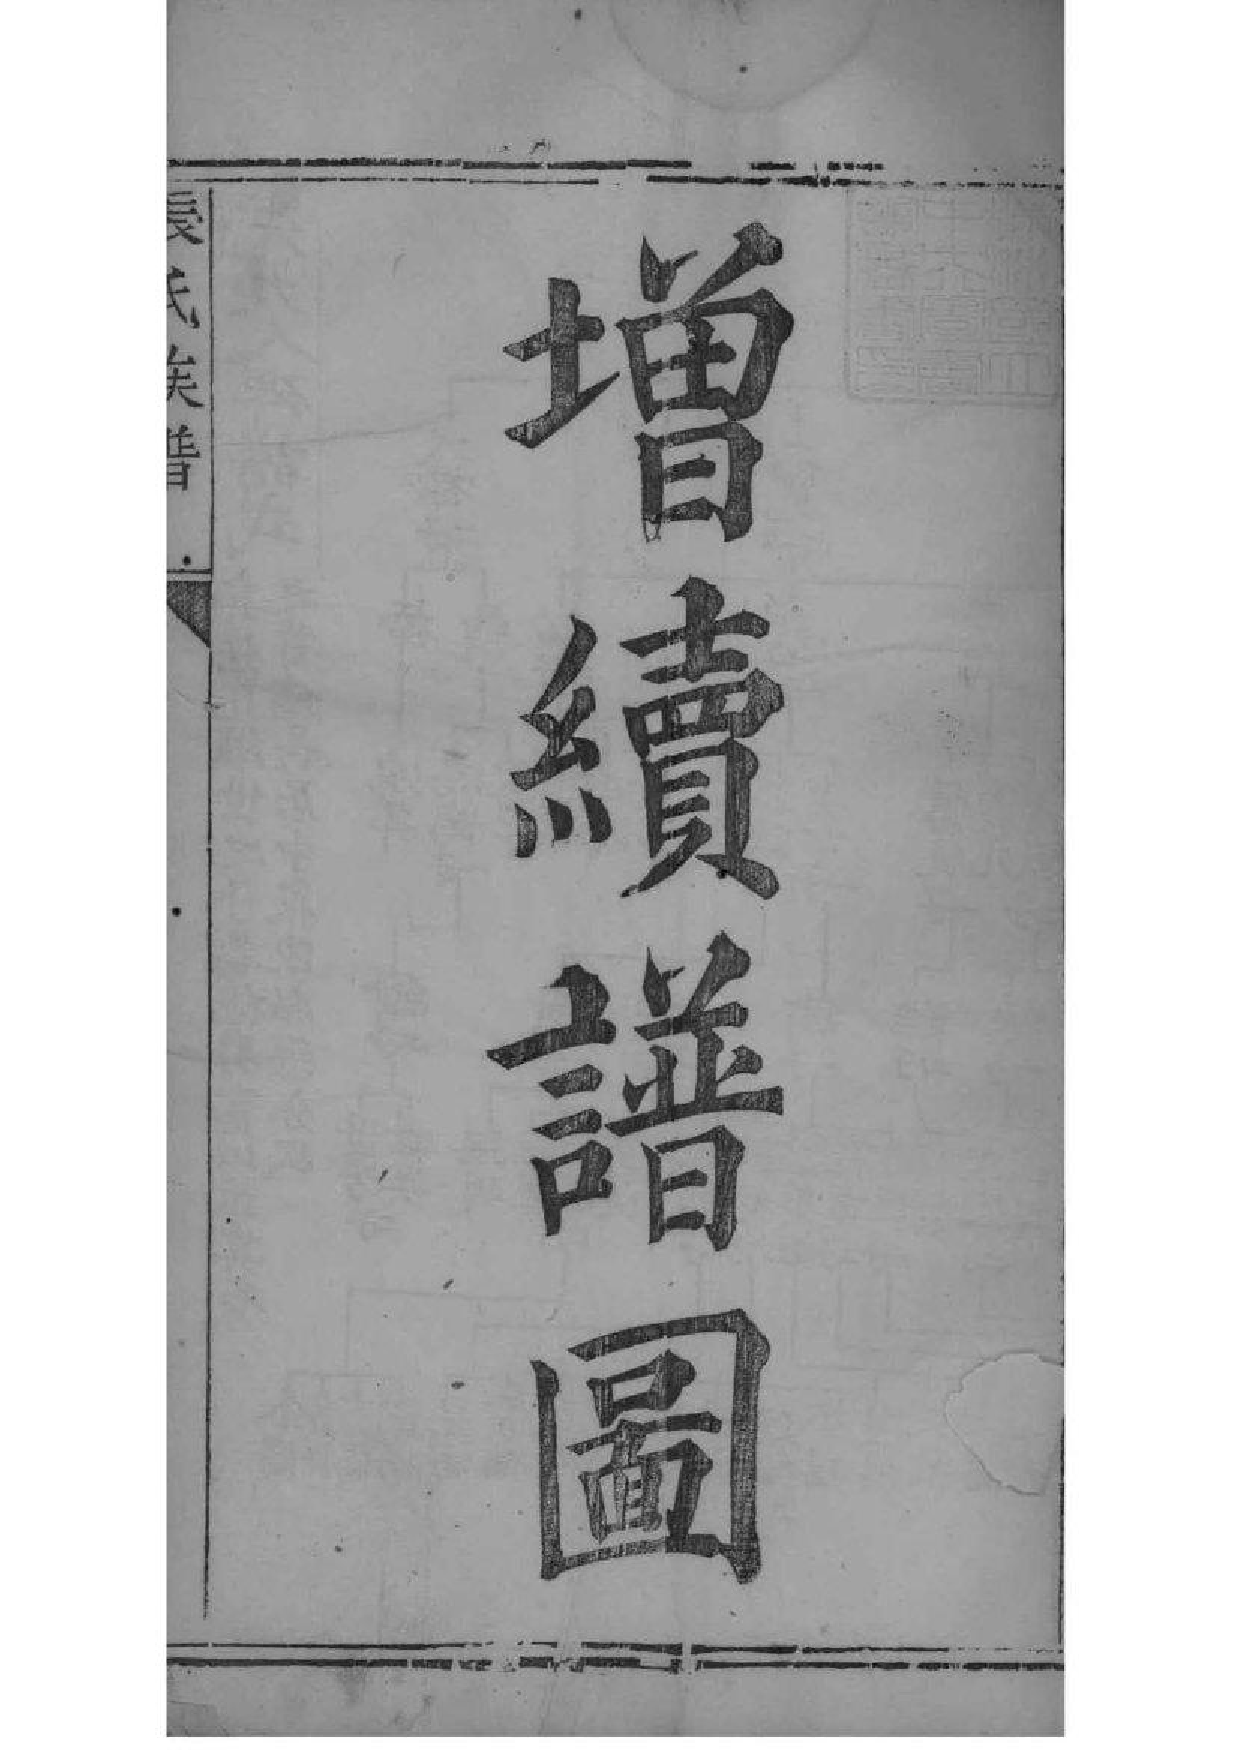 增續譜圖
張氏族譜